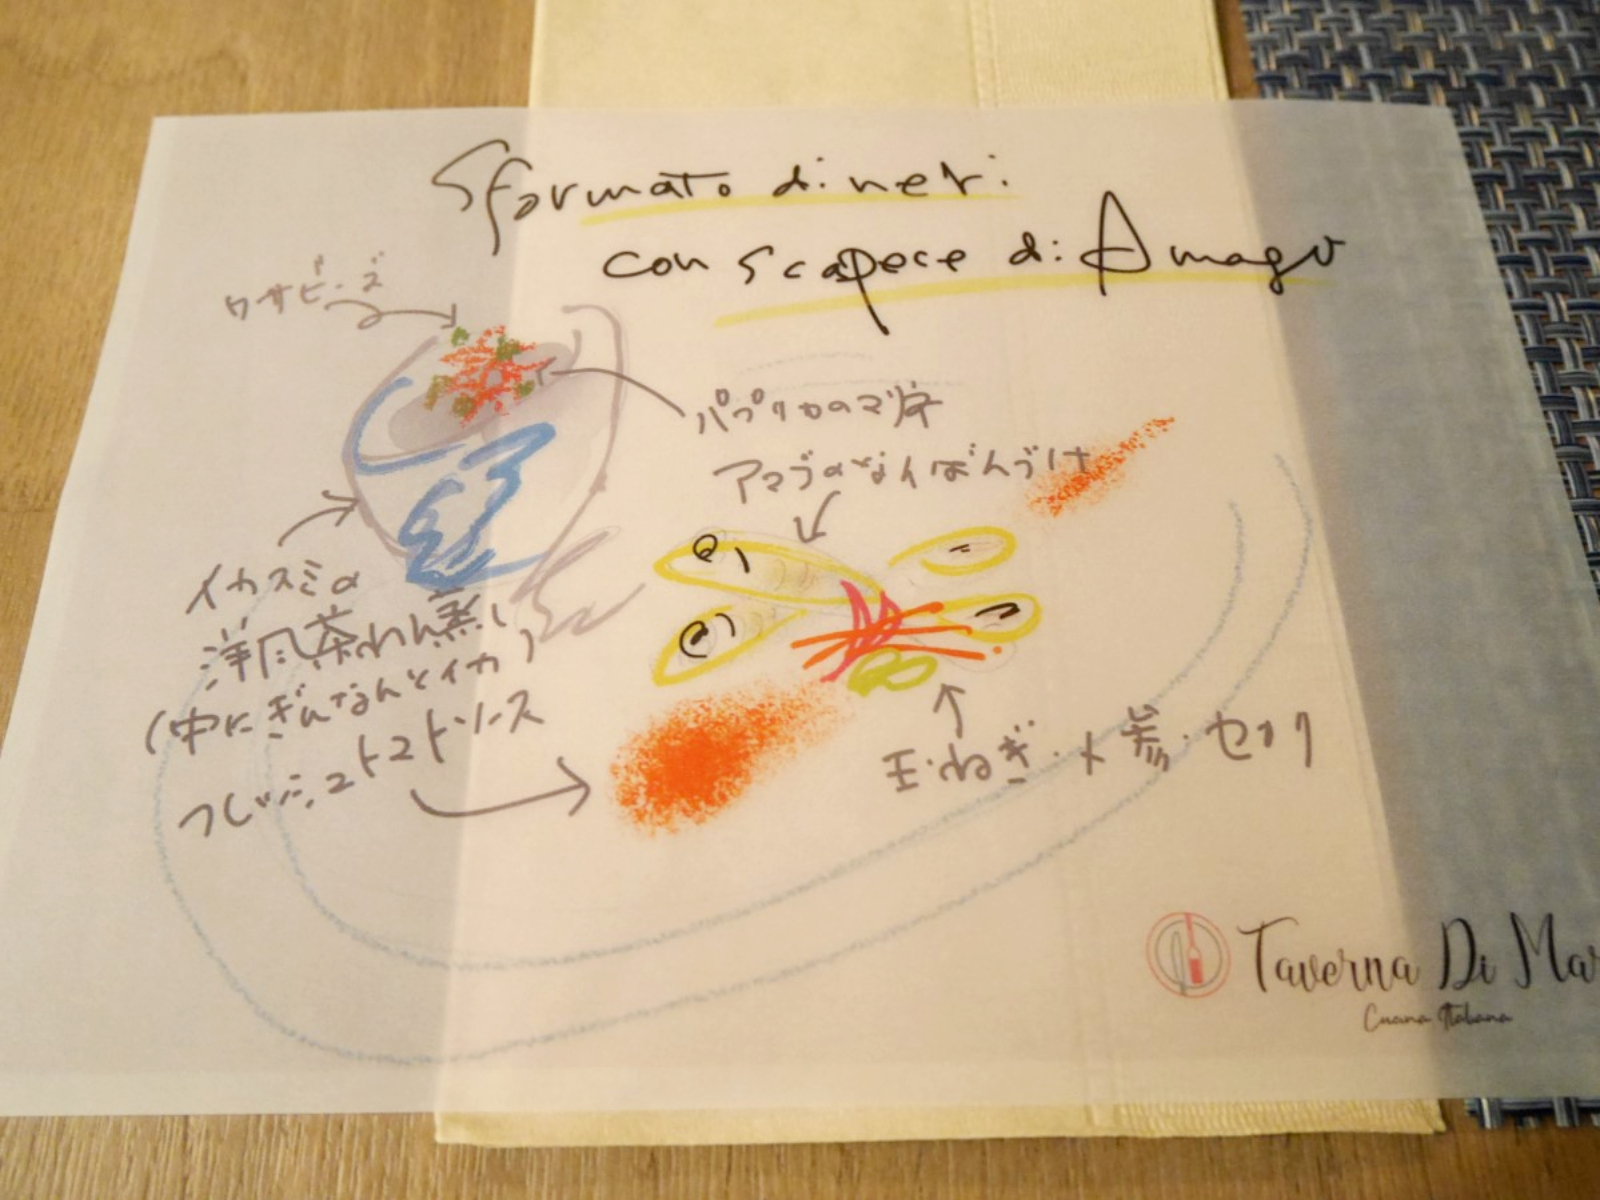 Sformato di neri
con scapece di Amago
ワサビーズ
パプリカのマリネ
アマゴのなんばんづけ
イカスミの
洋風茶わん蒸し
(中にぎんなんとイカ)
フレッシュトマトソース
玉ねぎ・人参・セロリ
Taverna Di Mar
Cucina Italiana